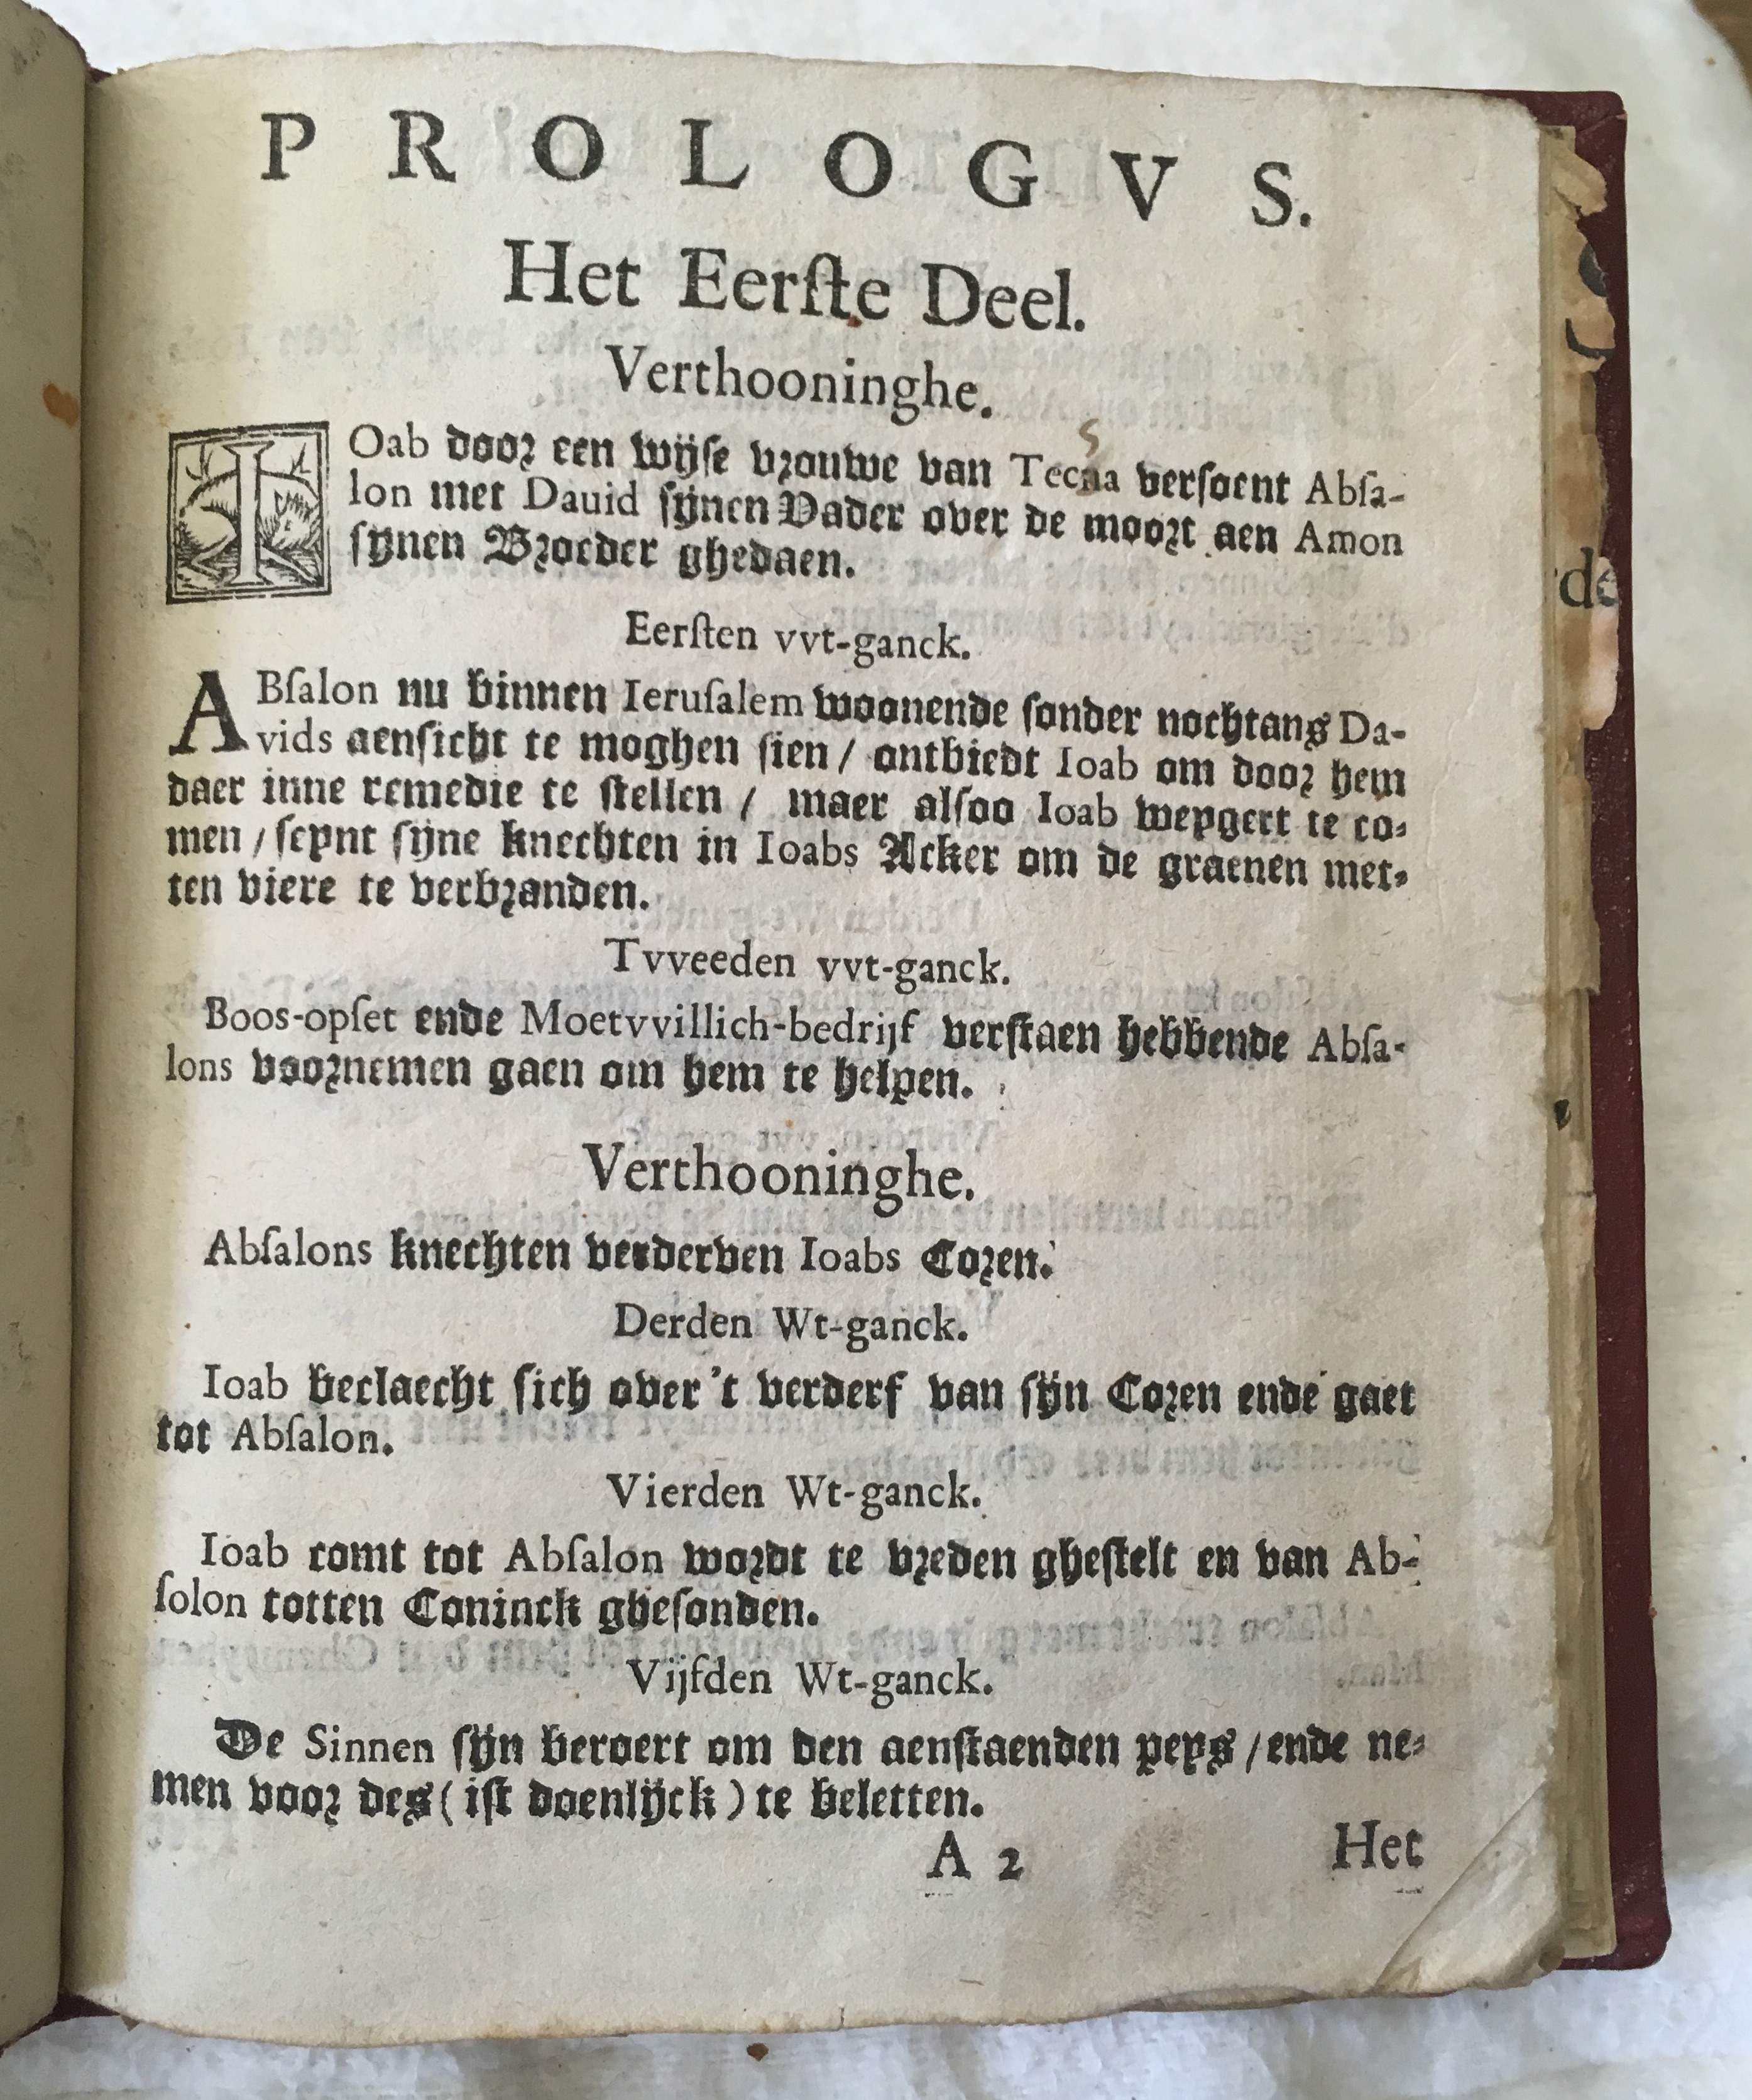 PROLOGVS.
Het Eerſte Deel.
Verthooninghe.
IOab door een wijſe vrouwe van Tecna verſoent Abſa-
lon met Dauid ſijnen Vader over de moort aen Amon
ſynen Broeder ghedaen.
Eerſten vvt-ganck.
ABſalon nu binnen Ieruſalem woonende ſonder nochtans Da-
vids aenſicht te moghen ſien / ontbiedt Ioab om door hem
daer inne remedie te ſtellen / maer alſoo Ioab weygert te co-
men / ſeynt ſijne knechten in Ioabs Acker om de graenen met-
ten viere te verbranden.
Tvveeden vvt-ganck.
Boos-opſet ende Moetvvillich-bedrijf verſtaen hebbende Abſa-
lons voornemen gaen om hem te helpen.
Verthooninghe.
Abſalons knechten verderven Ioabs Coren.
Derden Wt-ganck.
Ioab beclaecht ſich over 't verderf van ſijn Coren ende gaet
tot Abſalon.
Vierden Wt-ganck.
Ioab comt tot Abſalon wordt te vreden gheſtelt en van Ab-
ſolon totten Coninck gheſonden.
Vijfden Wt-ganck.
De Sinnen ſijn beroert om den aenſtaenden peys / ende ne-
men voor des ( iſt doenlijck ) te beletten.
A 2 Het
de